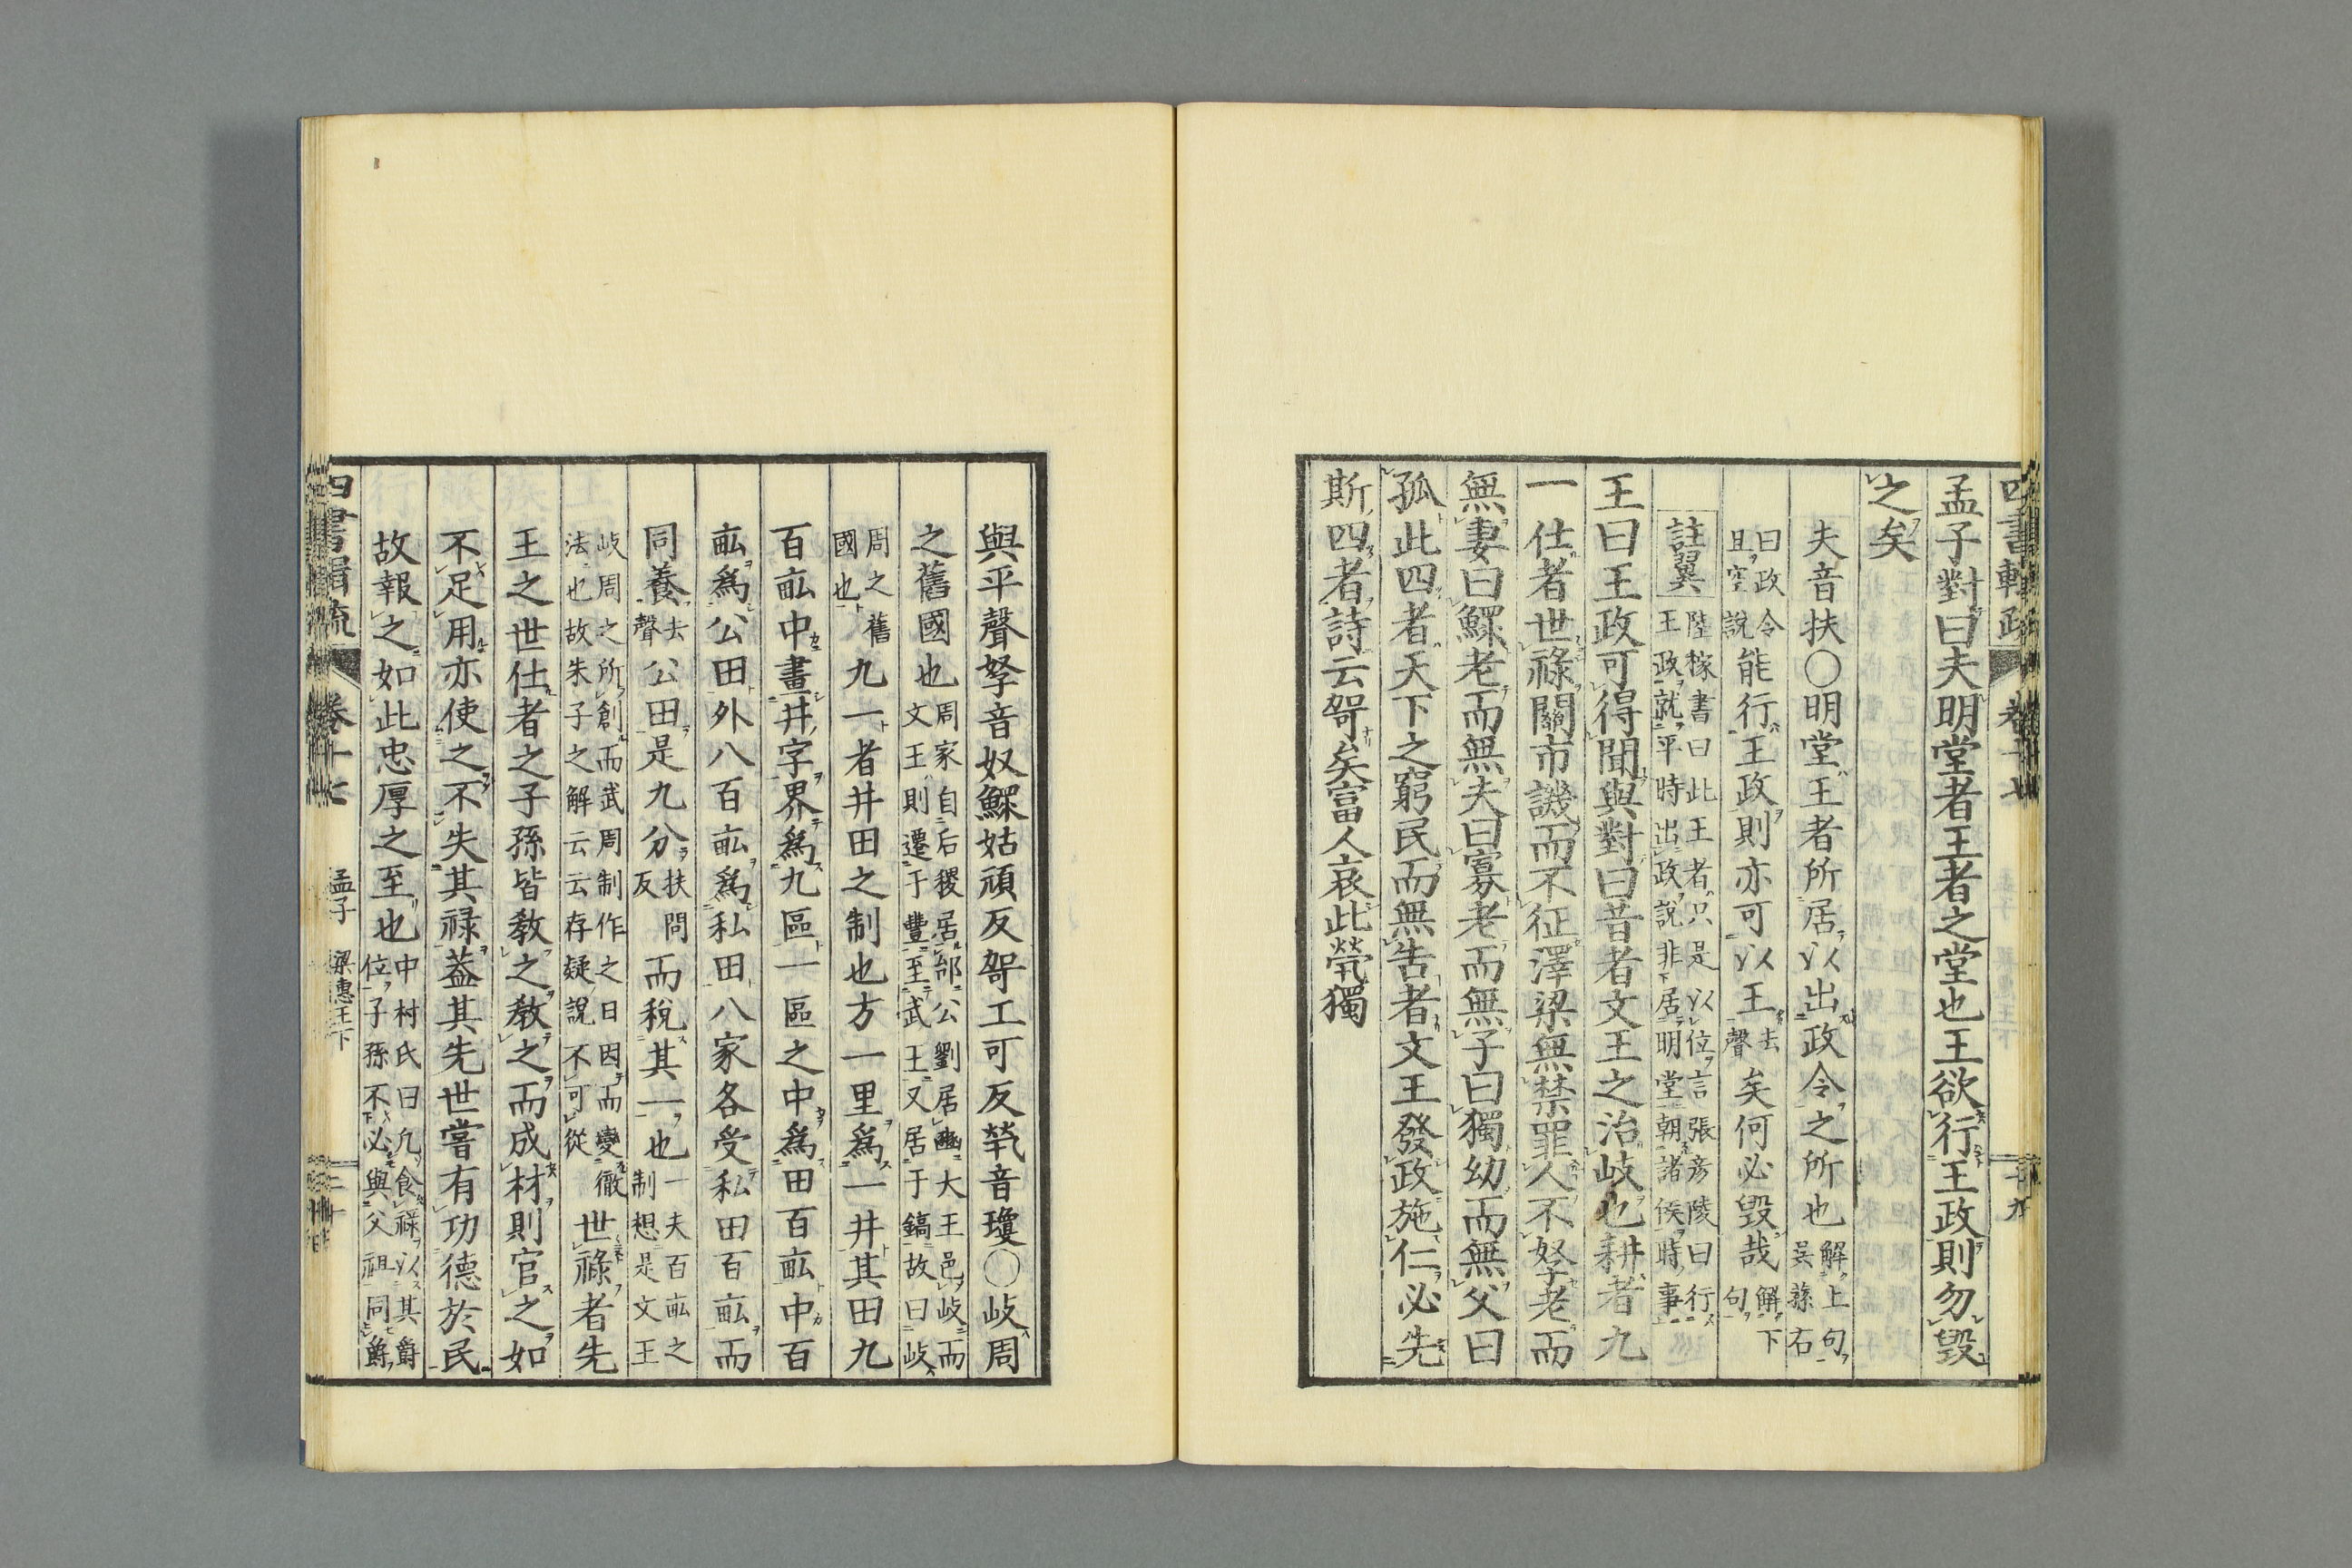 孟子對曰夫明堂者王者之堂也王欲行王政則勿毀
之矣
夫音扶〇明堂王者所居以出政令之所也解上句吳蓀右
曰政令且空說能行王政則亦可以王去聲矣何必毀哉解下句
註翼陸稼書曰此王者只是以位言張彥陵曰行王政就平時出政說非居明堂朝諸侯時事
王曰王政可得聞與對曰昔者文王之治岐也耕者九
一仕者世祿關市譏而不征澤梁無禁罪人不孥老而
無妻曰鰥老而無夫曰寡老而無子曰獨幼而無父曰
孤此四者天下之窮民而無告者文王發政施仁必先
斯四者詩云哿矣富人哀此煢獨
與平聲孥音奴鰥姑頑反哿工可反煢音瓊〇岐周
之舊國也周家自后稷居邰公劉居豳大王邑岐而文王則遷于豐至武王又居于鎬故曰岐
周之舊國也九一者井田之制也方一里爲一井其田九
百畝中畫井字界爲九區一區之中爲田百畝中百
畝爲公田外八百畝爲私田八家各受私田百畝而
同養去聲公田是九分扶問反而稅其一也一夫百畝之制想是文王
岐周之所創而武周制作之日因而變徹法也故朱子之解云云存疑說不可從世祿者先
王之世仕者之子孫皆敎之敎之而成材則官之如
不足用亦使之不失其祿葢其先世嘗有功德於民
故報之如此忠厚之至也中村氏曰凡食祿以其爵位子孫不必與父祖同爵
四書輯疏 卷十七 孟子 梁惠王下